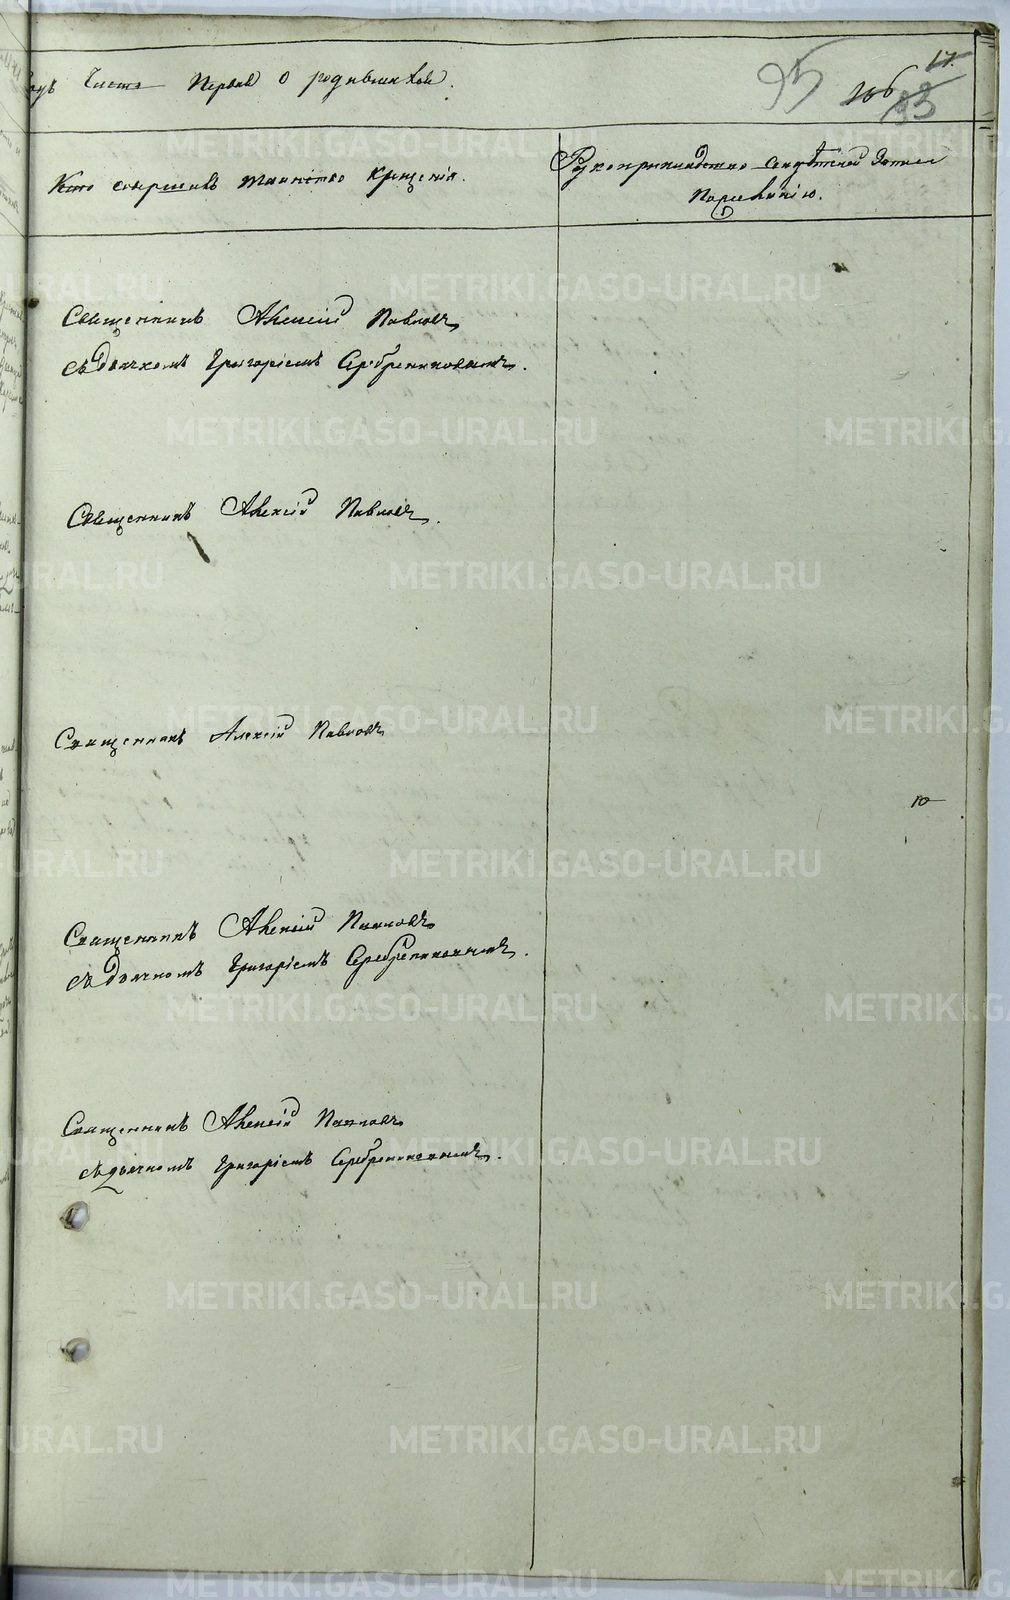 годъ Часть Первая О родившихся.
95 106 17. 33
Кто совершилъ таинство крещенія.
Рукоприкладство свидѣтелей записи
по желанію.
Священникъ Алексій Павловъ
съ Дьячкомъ Григоріемъ Серебренниковымъ.
Священникъ Алексій Павловъ.
Священникъ Алексій Павловъ
10
Священникъ Алексій Павловъ
съ Дьячкомъ Григоріемъ Серебренниковымъ.
Священникъ Алексій Павловъ
съ дьячкомъ Григоріемъ Серебренниковымъ.
METRIKI.GASO-URAL.RU